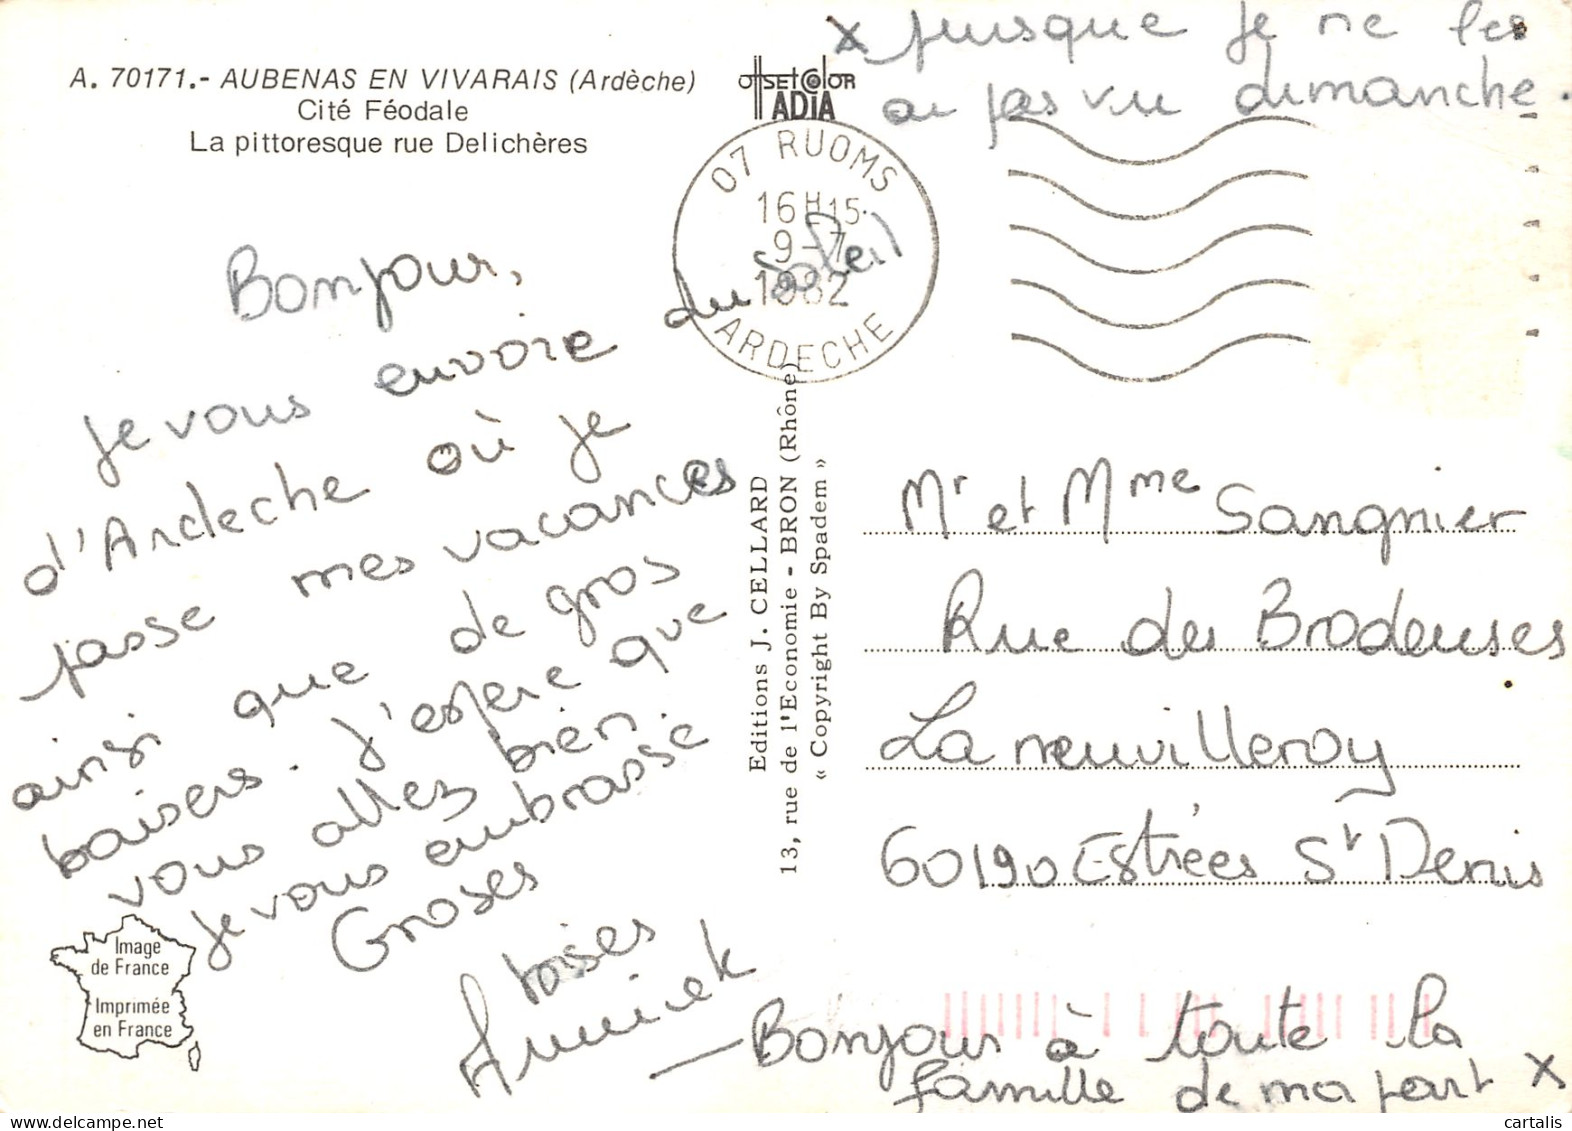 A. 70171.- AUBENAS EN VIVARAIS (Ardèche)
Cité Féodale
La pittoresque rue Delichères
offsetcolor
ADIA
x puisque je ne les
ai pas vu dimanche.
07 RUOMS
16H15
9-7
1982
ARDECHE
Bonjour,
je vous envoie du soleil
d'Ardeche où je
passe mes vacances
ainsi que de gros
baisers. J'espere que
vous allez bien.
je vous embrasse
Groses
baises
Annick
Editions J. CELLARD
13, rue de l'Economie - BRON (Rhône)
« Copyright By Spadem »
Mr et Mme Sangnier
Rue des Brodeuses
La neuvilleroy
60190 Estrées St Denis
Image
de France
Imprimée
en France
— Bonjour à toute la
famille de ma part x
cartalis
www.delcampe.net